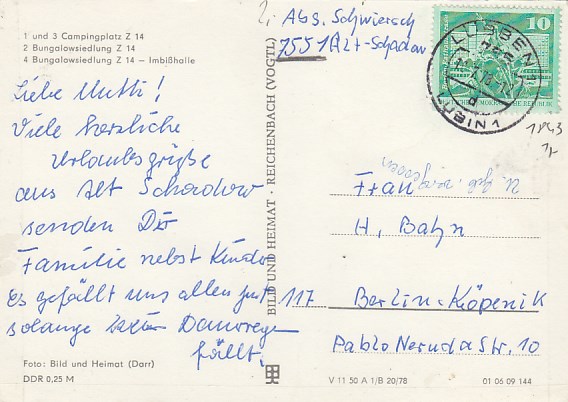 1 und 3 Campingplatz Z 14
2 Bungalowsiedlung Z 14
4 Bungalowsiedlung Z 14 – Imbißhalle
Liebe Mutti!
Viele herzliche
Urlaubsgrüße
aus Alt Schadow
senden Dir
Familie nebst Kinder
Es gefällt uns allen gut
solange kein Dauerregen
fällt.
Foto: Bild und Heimat (Darr)
DDR 0,25 M
BILD UND HEIMAT · REICHENBACH (VOGTL)
Abs. Schwiersch
7551 Alt-Schadow
10
LÜBBEN 1
7551
1843
Frau
H. Bahn
117 Berlin-Köpenik
Pablo Neruda Str. 10
V 11 50 A 1/B 20/78
01 06 09 144